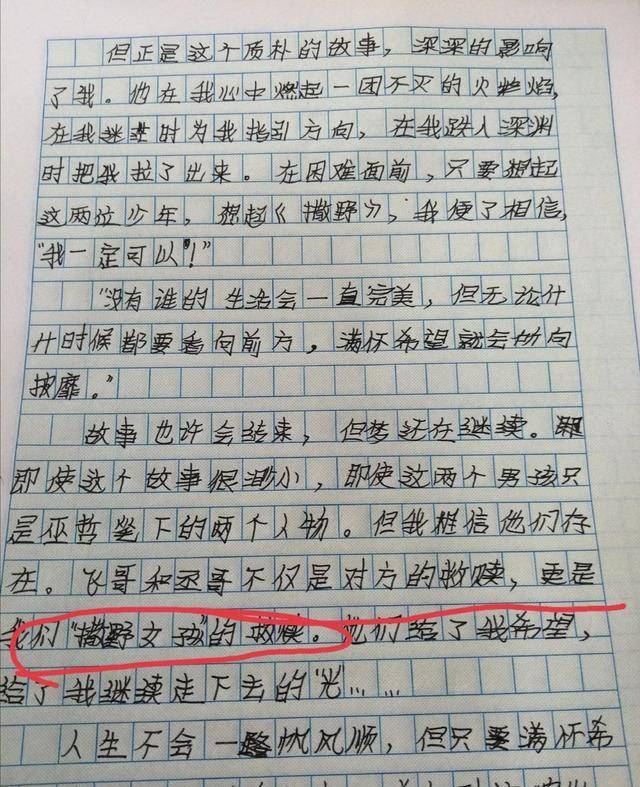 但正是这个质朴的故事，深深的影响
了我。他在我心中燃起一团不灭的火焰，
在我迷茫时为我指引方向，在我跌入深渊
时把我拉了出来。在困难面前，只要想起
这两位少年，想起《撒野》，我便了相信，
“我一定可以！”
“没有谁的生活会一直完美，但无论什
什时候都要看向前方，满怀希望就会所向
披靡。”
故事也许会结束，但梦还在继续。
即使这个故事很渺小，即使这两个男孩只
是巫哲笔下的两个人物。但我相信他们存
在。飞哥和丞哥不仅是对方的救赎，更是
我们“撒野女孩”的救赎。他们给了我希望，
给了我继续走下去的光……
人生不会一路帆风顺，但只要满怀希